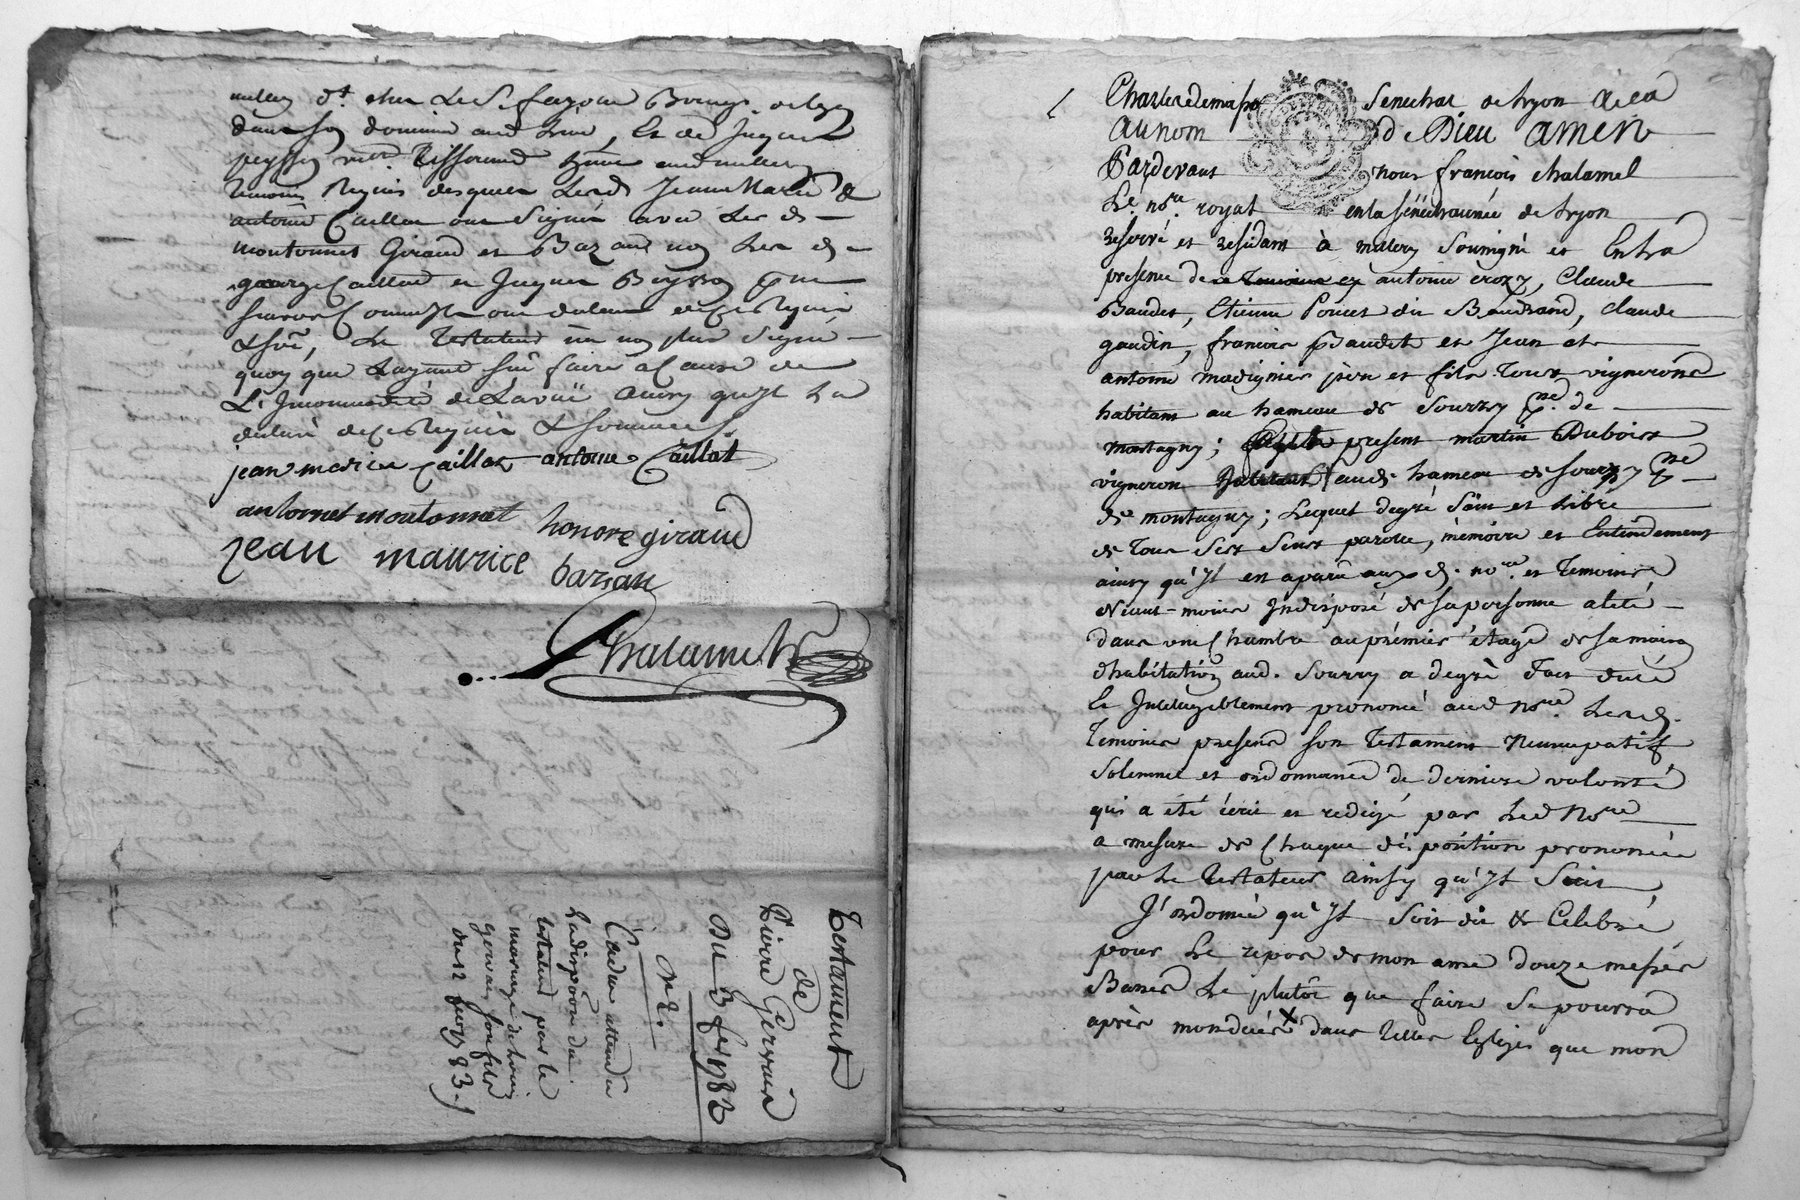 millery d. ches Le S. fayolle Bourg. de Lyon
dans son domicile aud. Lieu, Et de Jaques
peysson
temoins Requis desquels Lesd. Jeanne Marie &
antoine Caillat ont Signé avec Les d.
moutonnet Giraud et Bazan non Les d.
george Caillat et Jaques Peysson
de ce Requis
Le Testateur n'a non plus Signé
quoy que Layant sçu faire a Cause de
L'Jncommodité de Lavüe ainsy qu'Jl La
declaré de ce Requis & sommé
jean marie caillat antoine Caillat
moutonnet honore giraud
jean maurice barsan
Chalamel
Testament
de
Pierre Gervais
Du 3 fev 1782
N 2.
Caduc attendu
La dispôon du
testateur par le
mariage de Louis
gervais son fils
du 12 fevr 83
Charle de masso Senechal de Lyon
Au nom de Dieu Amen
Pardevant nous françois chalamel
Le nore. royal en la sénéchaussée de Lyon
reservé et residant à millery soussigné et En la
presence de antoine crozy, Claude
Baudet, Etienne Poncet dit Baudrand, claude
gaudin, francois Baudet et Jean et
antoine madignier père et fils tous vignerons
habitant au hameau de Sourzy psse. de
montagny; present martin Dubois
vigneron aud. hameau de Sourzy psse
de montagny; Lequel degré Sain et Libre
de tous Ses Sens parolle, mémoire et Entendement
ainsy qu'Jl est aparu auxd. nore. et Temoins
Neant-moins Jndisposé de sa personne alité
dans une Chambre au prémier étage de sa maison
d'habitation aud. Sourzy a degré Fait dicté
Et Jntelligiblement prononcé aud Nore. Lesd.
Temoins presens son Testament Nuncupatif
Solemnel et ordonnance de derniere volonté
qui a été écrit et redigé par Led Nore
a mesure de Chaque disposition prononcée
par Le Testateur ainsy qu'Jl Suit
J'ordonne qu'Jl Soit dit & Celebré
pour Le repos de mon ame douze messes
Basses Le plutôt que faire se pourra
après mon décès dans telles Eglizes que mon